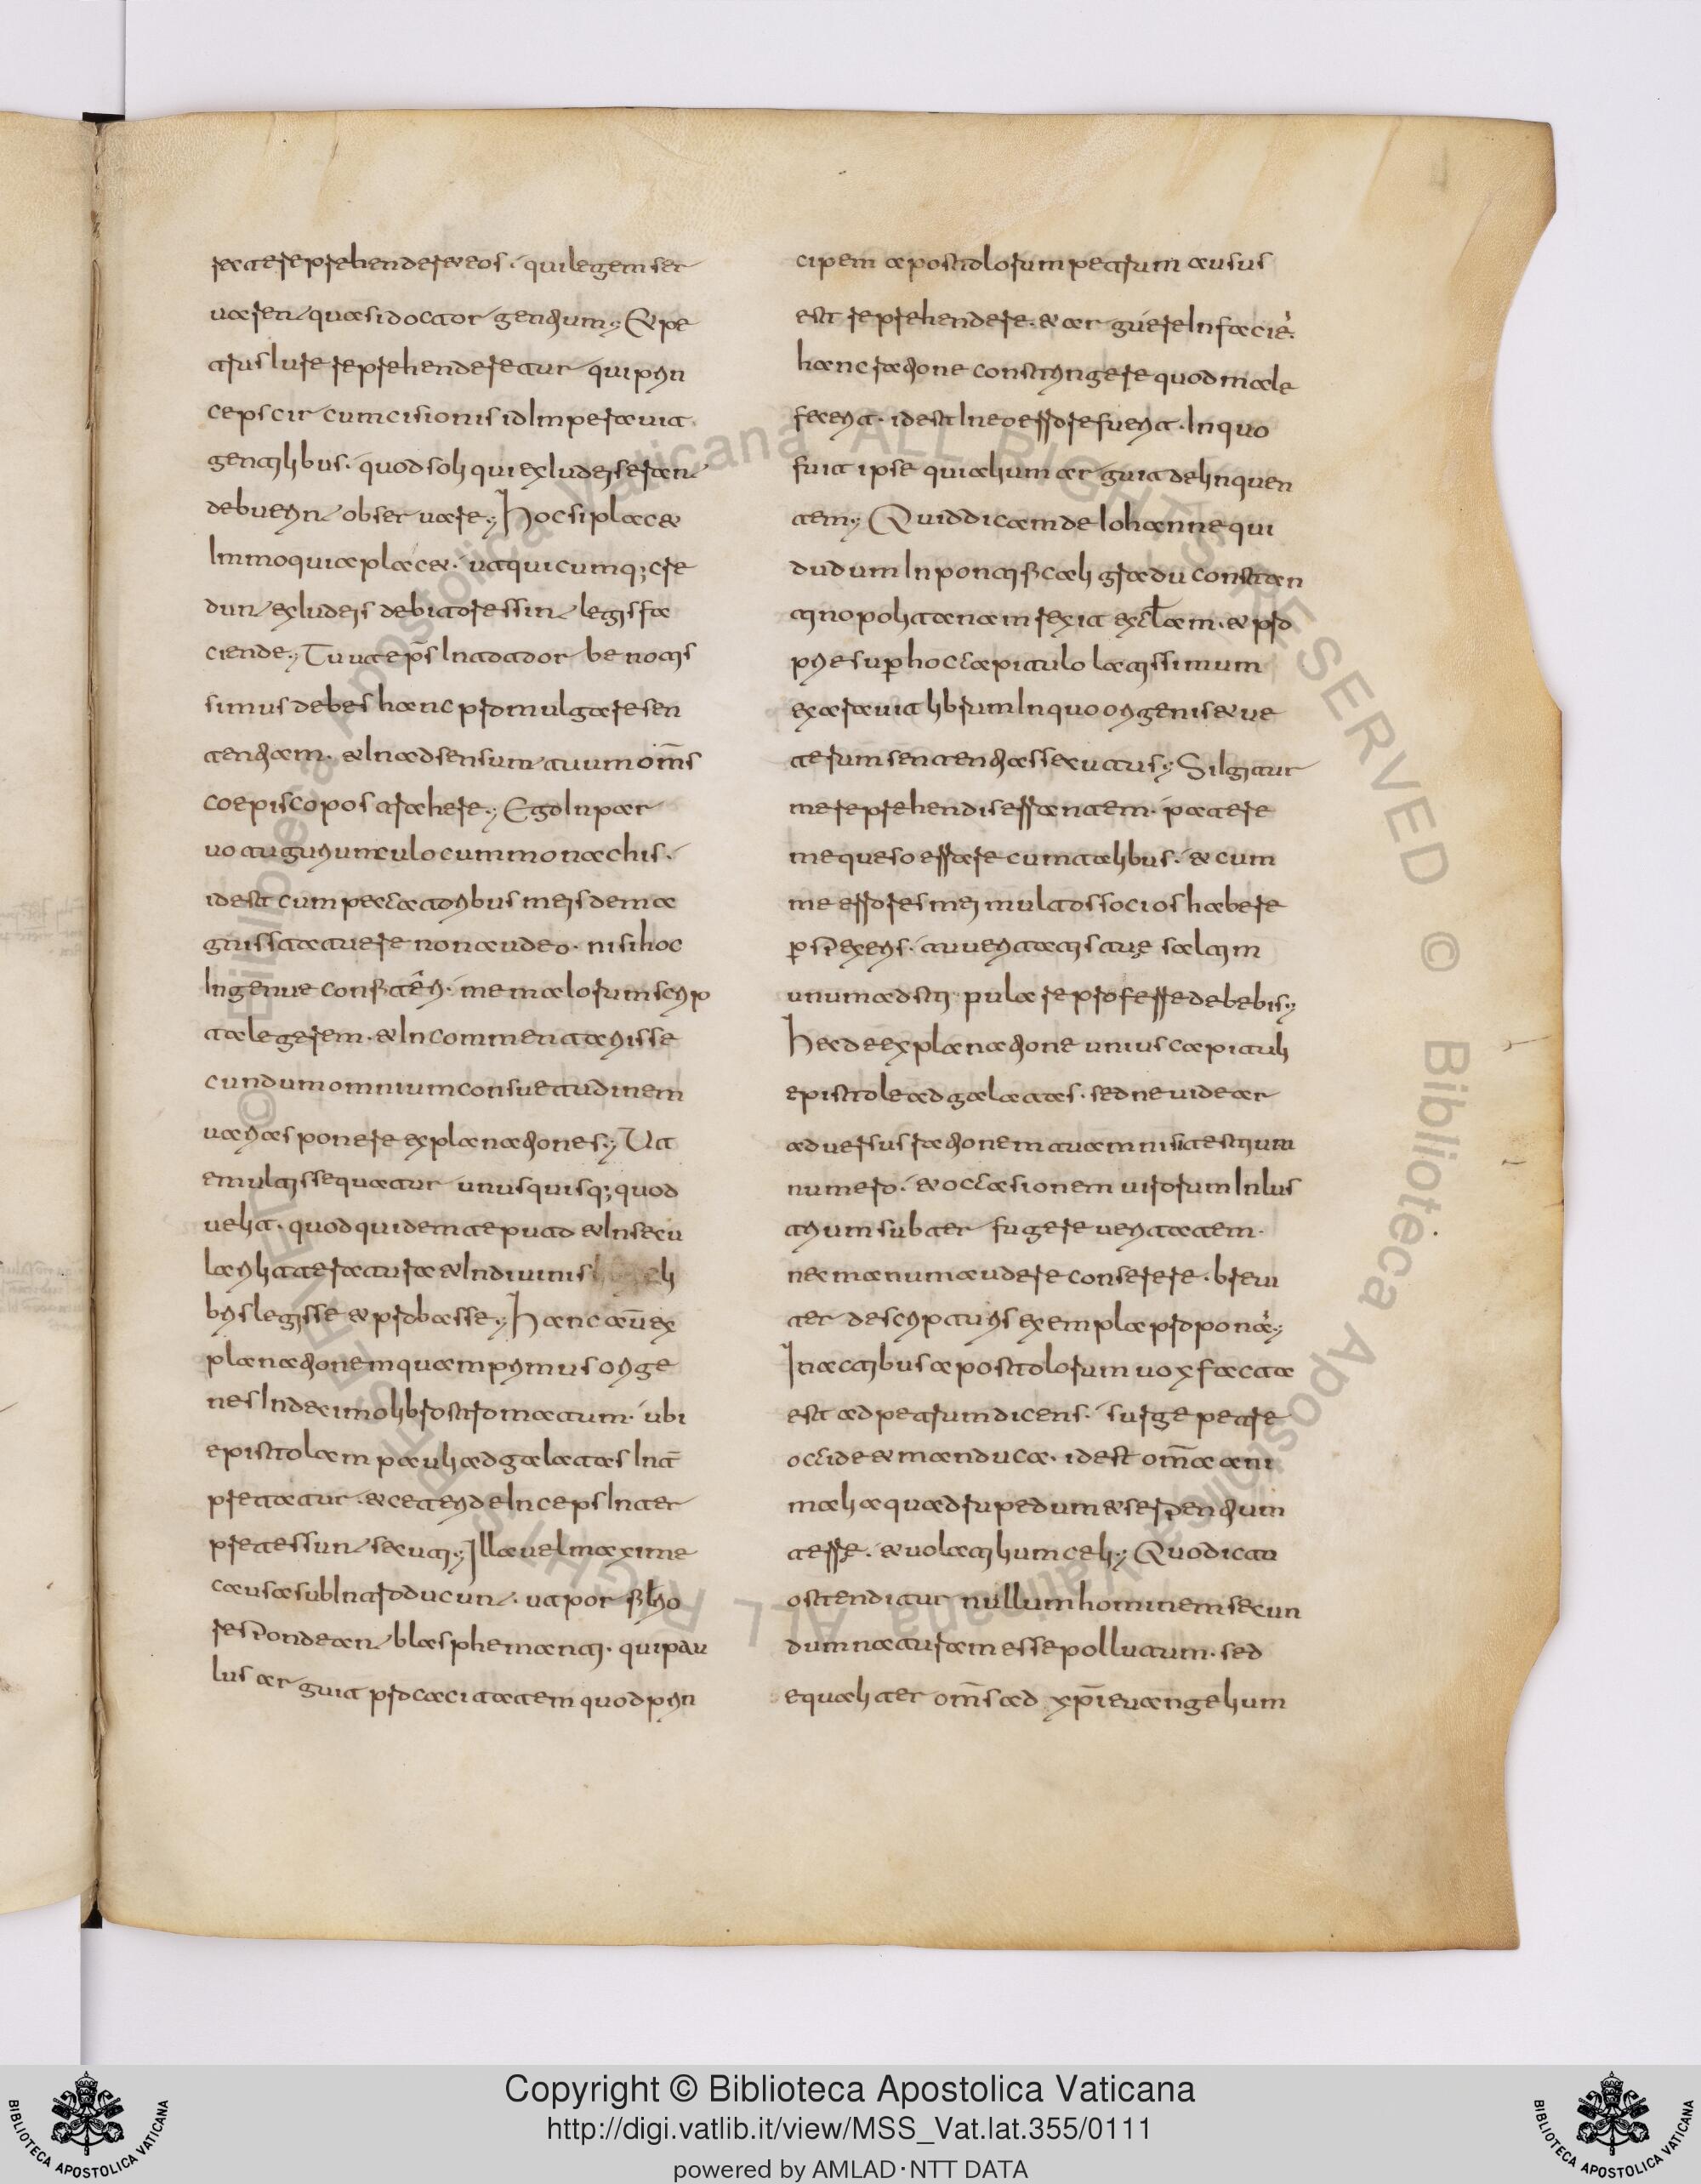 recte reprehenderet eos · qui legem ser
uaren quasi doctor gentium; Et pe
trus iure reprehenderetur qui prin
ceps circumcisionis id Imperauit
gentilibus · quod soli qui ex iudeis eran
debuerin obseruare; Hoc si placet
Immo quia placet · ut quicumq; cre
dun ex iudeis debitores sin legis fa
ciende; Tu ut ep̄s In toto orbe notis
simus debes hanc promulgare sen
tentiam · et In adsensum tuum om̄s
coepiscopos trahere; Ego In par
uo tuguriunculo cum monachis ·
id est cum peccatoribus meis de ma
gnis statuere non audeo · nisi hoc
Ingenue confiteri · me maiorum scrip
ta legerem · et In commentariis se
cundum omnium consuetudinem
uarias ponere explanationes; Ut
e multis sequatur unusquisq; quod
uelit · quod quidem te puto et In secu
lari litteratura et In diuinis li
bris legisse et probasse; Hanc aū ex
planationem quam primus orige
nes In decimo libro stromatum · ubi
epistolam pauli ad galatas Int̄
pretatur · et ceteri deinceps Inter
pretes sun secuti; Illa uel maxime
causa subIntroducun · ut porfirio
respondean blasphemanti · qui pau
lus arguit procacitatem quod prin
cipem apostolorum petrum ausus
est reprehendere · et arguere In facie ·
hanc ratione constringere quod male
fecerit · id est In eo errore fuerit · In quo
fuit ipse qui alium arguit delinquen
tem; Quid dicam de Iohanne qui
dudum In pontificali gradu constan
tinopolitanam rexit eccl̄am · et pro
prie suꝑ hoc capitulo latissimum
exarauit librum In quo origenis et ue
terum sententias secutus; Si Igitur
me reprehendis errantem · patere
me queso errare cum talibus · et cum
me erroris mei multos socios habere
ꝑspexeris · tu ueritatis tuę saltim
unum adstipulatorem proferre debebis;
Hec de explanatione unius capituli
epistole ad galatas · sed ne uidear
aduersus rationem tuam nisi testium
numero · et occasionem uirorum Inlus
trium subterfugere ueritatem ·
nec manum audere conserere · breui
ter de scripturis exempla proponā;
In actibus apostolorum uox facta
est ad petrum dicens · surge petre
occide et manduca · id est om̄a ani
malia quadrupedum et serpentium
terrę · et uolatilium celi; Quo dicto
ostenditur nullum hominem secun
dum naturam esse pollutum · sed
equaliter om̄s ad xp̄i euangelium
Copyright © Biblioteca Apostolica Vaticana
http://digi.vatlib.it/view/MSS_Vat.lat.355/0111
powered by AMLAD·NTT DATA
BIBLIOTECA APOSTOLICA VATICANA
BIBLIOTECA APOSTOLICA VATICANA
© Biblioteca Apostolica Vaticana ALL RIGHTS RESERVED © Biblioteca Apostolica Vaticana ALL RIGHTS RESERVED